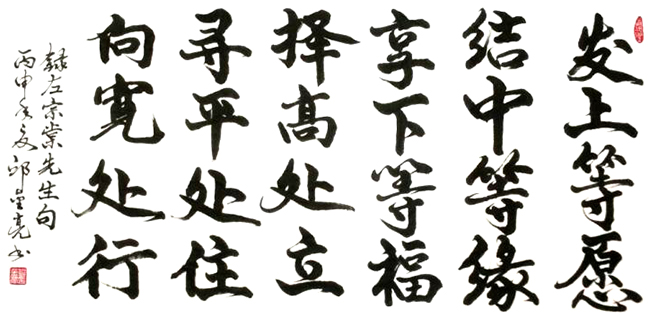 发上等愿
结中等缘
享下等福
择高处立
寻平处住
向宽处行
录左宗棠先生句
丙申年夏